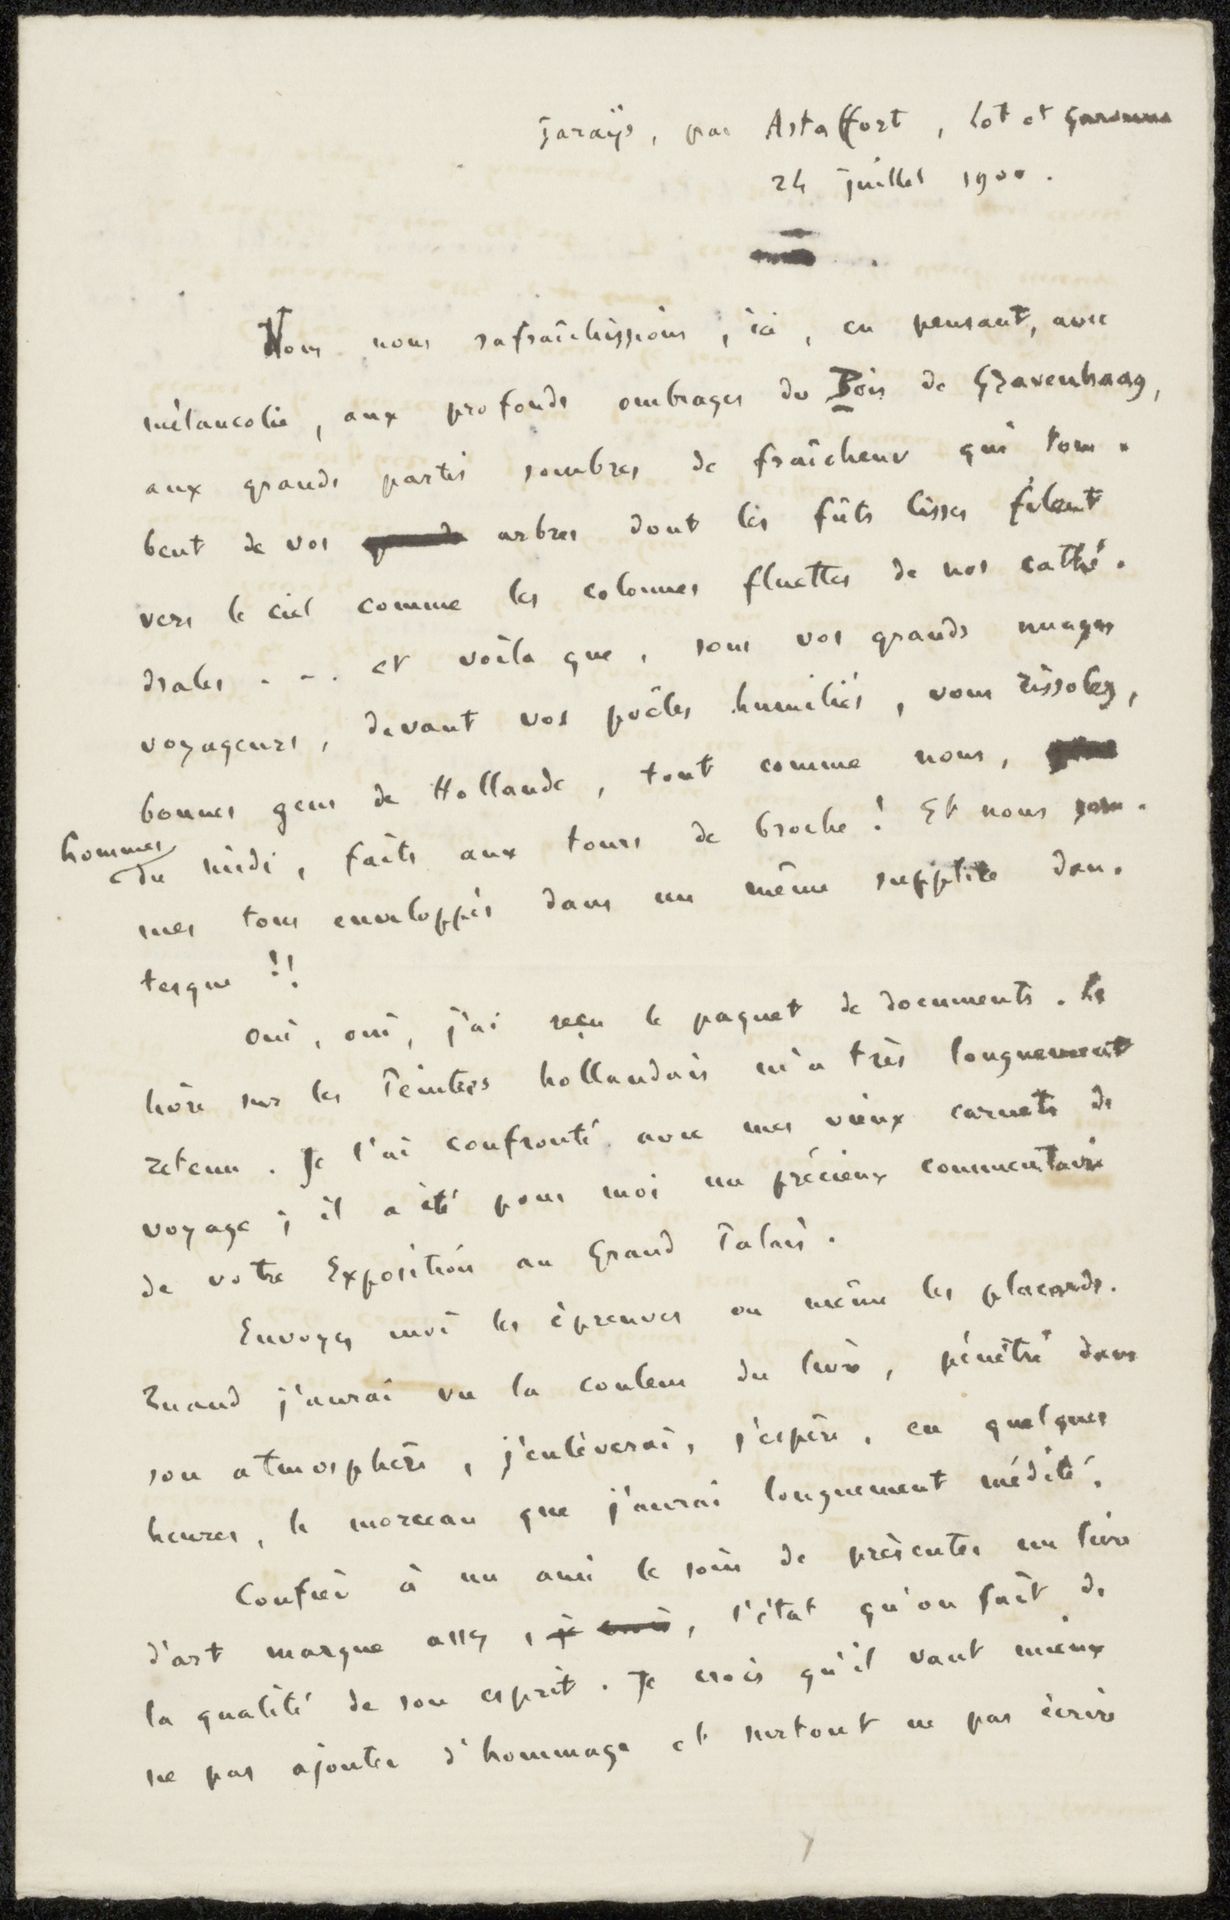 Garaÿs, par Astaffort, Lot et Garonne
24 juillet 1900.
Nous nous rafraîchissions, ici, en pensant, avec
mélancolie, aux profonds ombrages du Bois de Gravenhaag,
aux grands partis sombres de fraîcheur qui tom-
bent de vos arbres dont les fûts lisses filent
vers le ciel comme les colonnes fluettes de nos cathé-
drales . . . et voilà que, sous vos grands nuages
voyageurs, devant vos poêles humiliés, vous rissolez,
bonnes gens de Hollande, tout comme nous,
hommes
du midi, faits aux tours de broche ! Et nous som-
mes tous enveloppés dans un même supplice dan-
tesque !!
Oui, oui, j'ai reçu le paquet de documents. Le
livre sur les Peintres hollandais m'a très longuement
retenu. Je l'ai confronté avec mes vieux carnets de
voyage ; il a été pour moi un précieux commentaire
de votre Exposition au Grand Palais.
Envoyez moi les épreuves ou même les placards.
Quand j'aurai vu la couleur du livre, pénétré dans
son atmosphère, j'enlèverai, j'espère, en quelques
heures, le morceau que j'aurai longuement médité.
Confier à un ami le soin de présenter un livre
d'art marque assez, je crois, l'état qu'on fait de
la qualité de son esprit. Je crois qu'il vaut mieux
ne pas ajouter d'hommage et surtout ne pas écrire